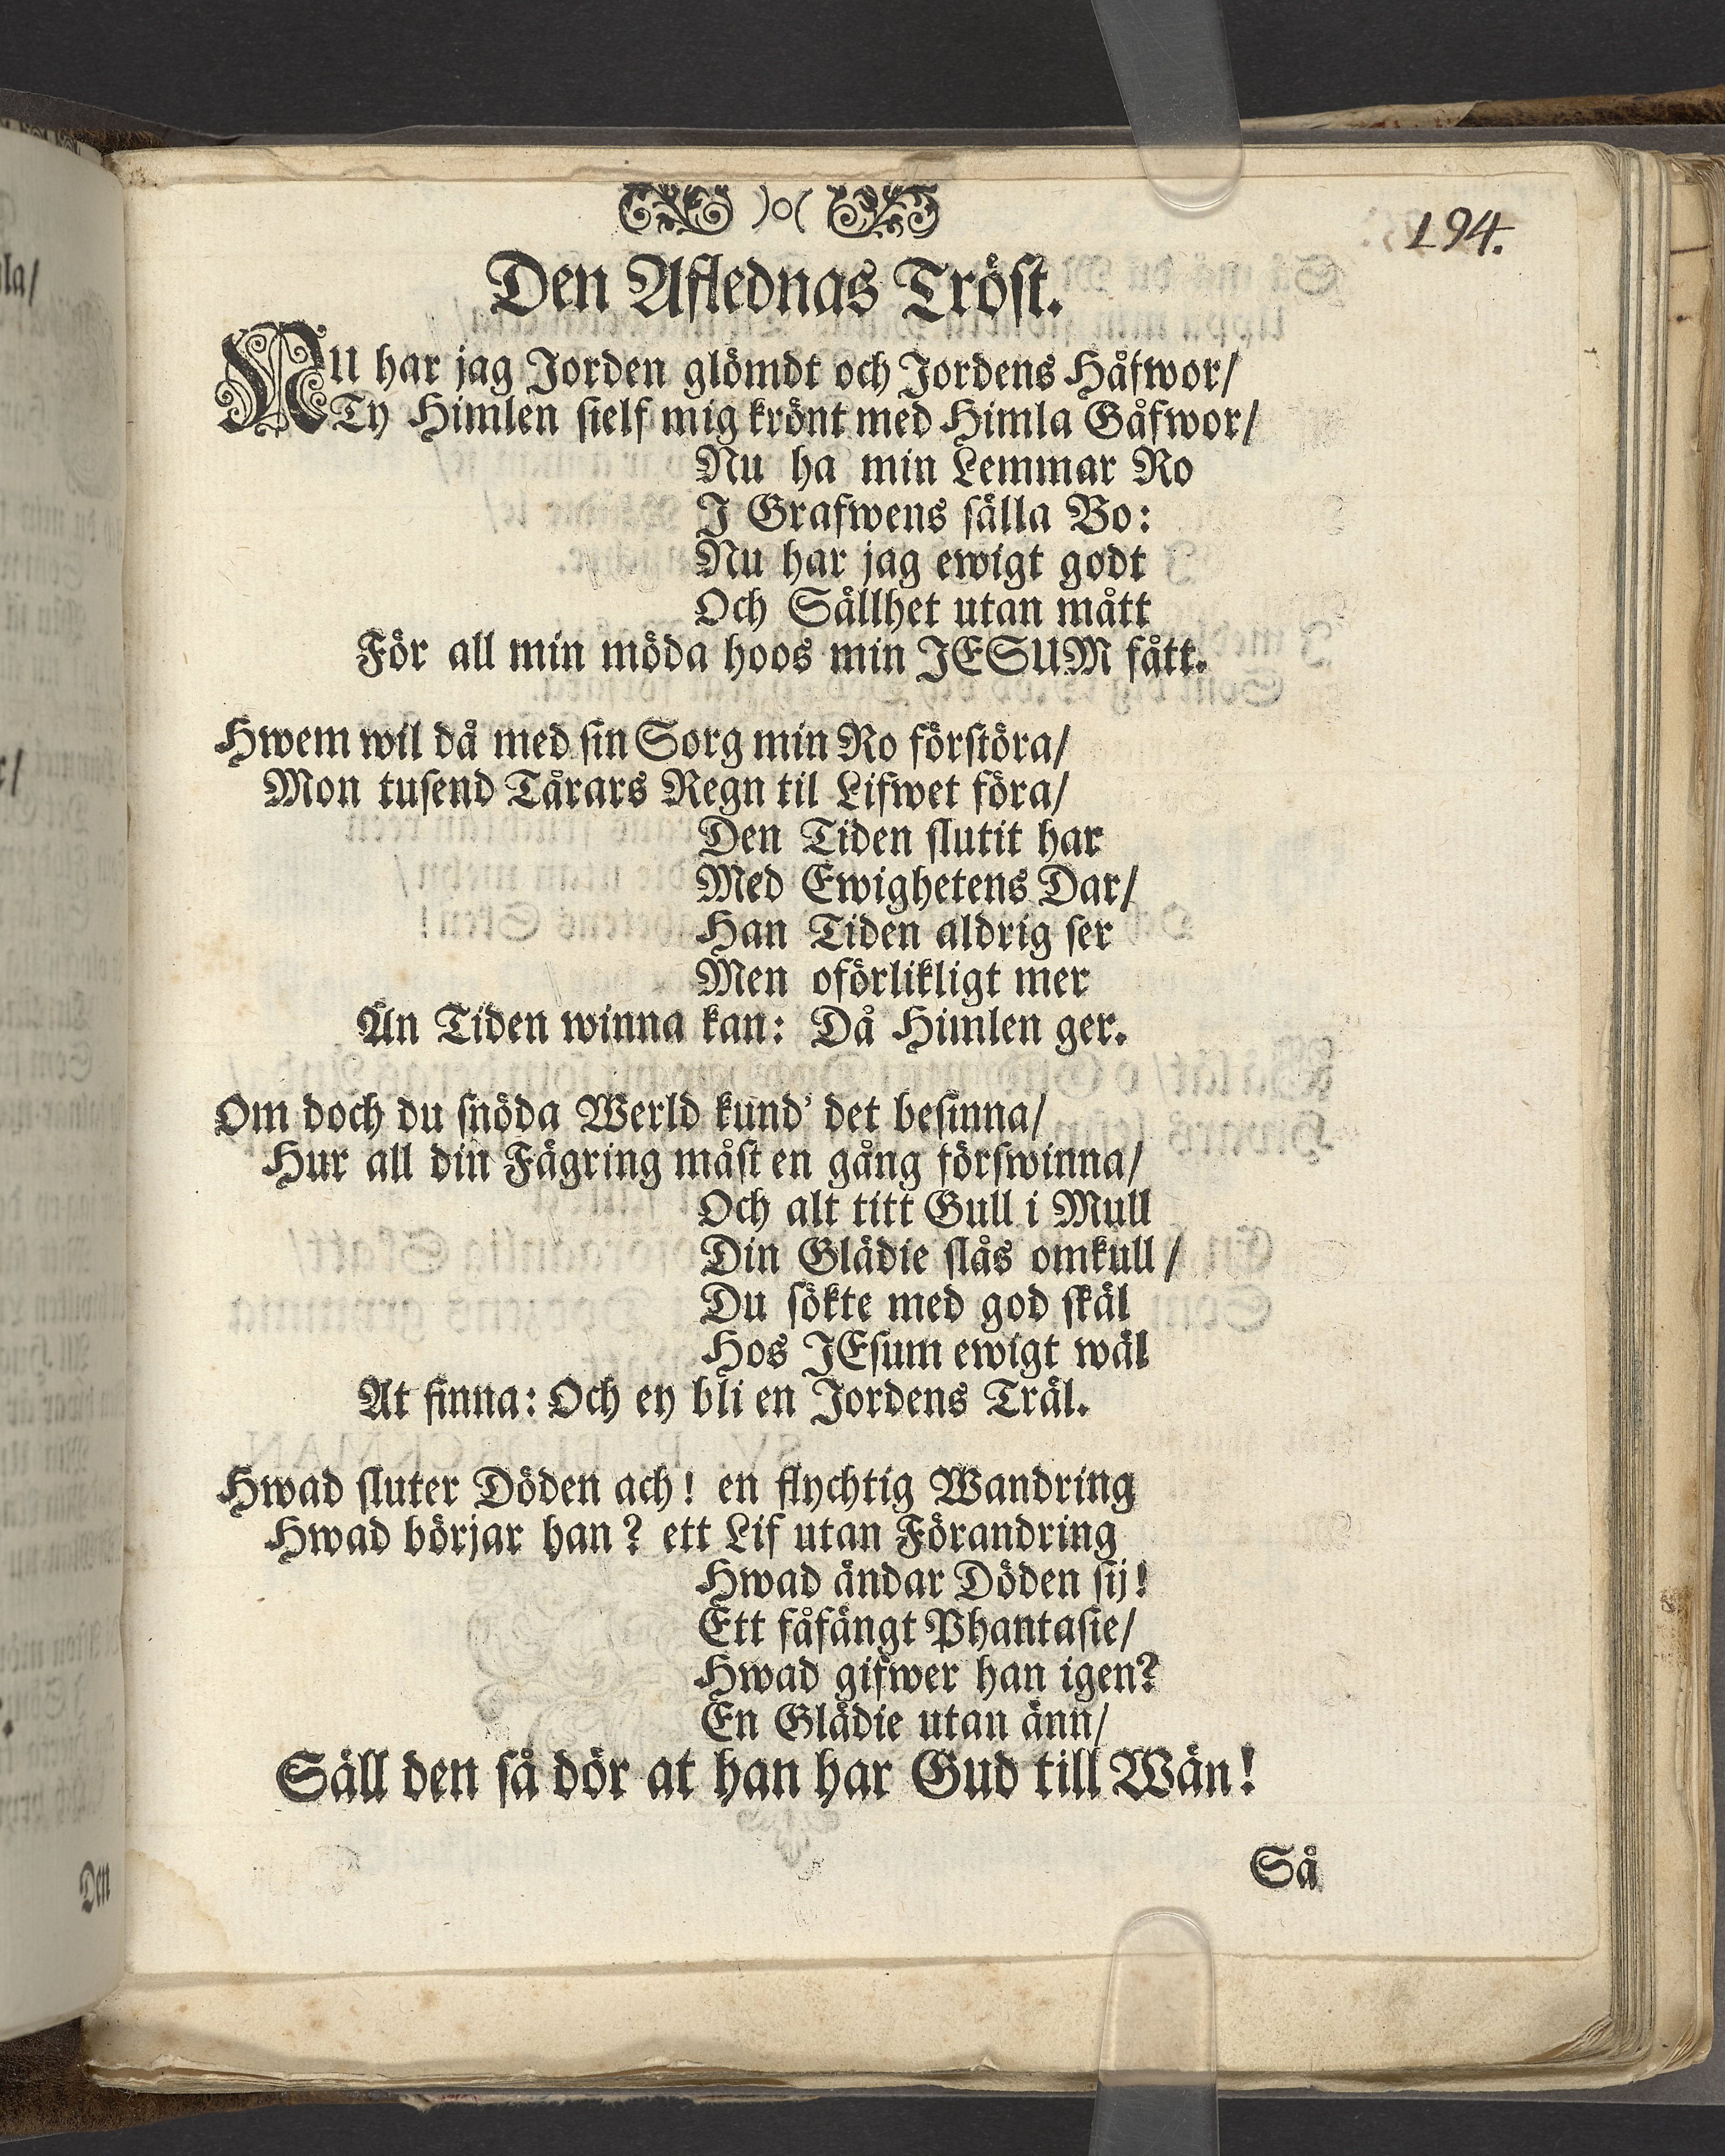 194.
Den Aflednas Tröst.
NU har jag Jorden glömdt och Jordens Håfwor/
Ty Himlen sielf mig krönt med Himla Gåfwor/
Nu ha min Lemmar Ro
I Grafwens sälla Bo:
Nu har jag ewigt godt
Och Sällhet utan mått
För all min möda hoos min JESUM fått.
Hwem wil då med sin Sorg min Ro förstöra/
Mon tusend Tårars Regn til Lifwet föra/
Den Tiden slutit har
Med Ewighetens Dar/
Han Tiden aldrig ser
Men oförlikligt mer
Än Tiden winna kan: Då Himlen ger.
Om doch du snöda Werld kund' det besinna/
Hur all din Fägring måst en gång förswinna/
Och alt titt Gull i Mull
Din Glädie slås omkull/
Du sökte med god skäl
Hos JEsum ewigt wäl
At finna: Och ey bli en Jordens Träl.
Hwad sluter Döden ach! en flychtig Wandring
Hwad börjar han? ett Lif utan Förandring
Hwad ändar Döden sij!
Ett fåfängt Phantasie/
Hwad gifwer han igen?
En Glädie utan änn/
Säll den så dör at han har Gud till Wän!
Så
Den